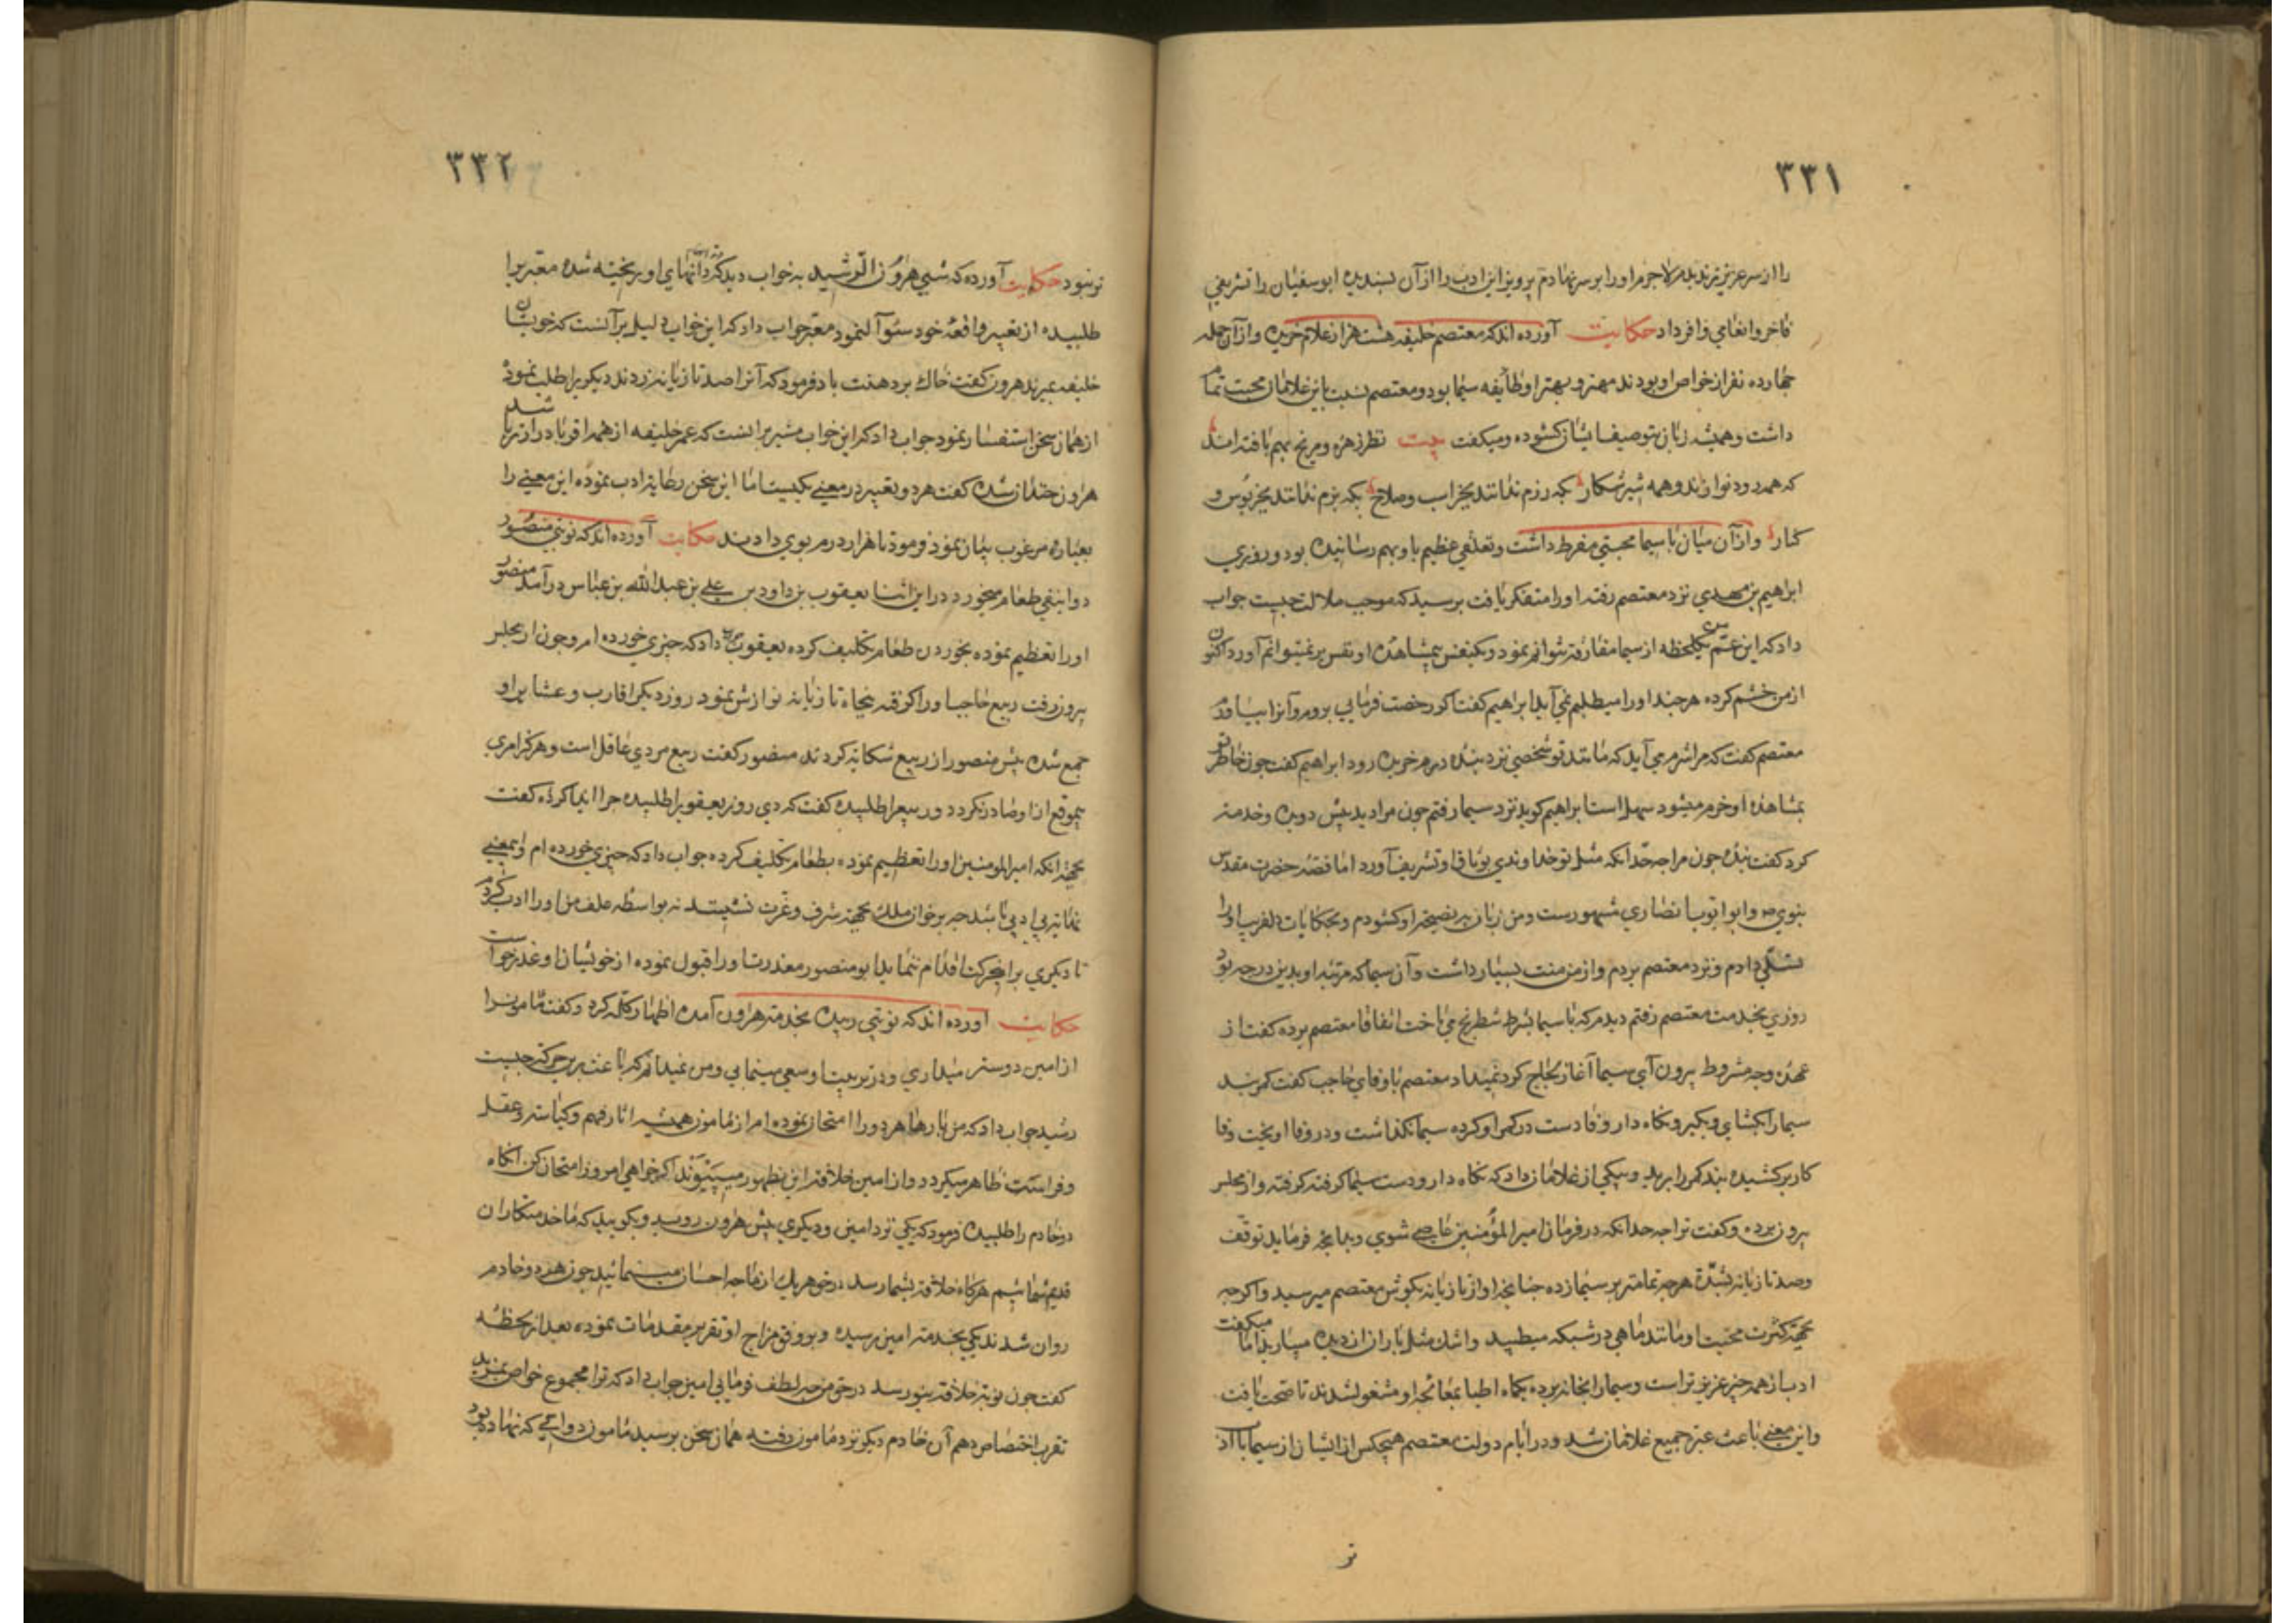 ۳۳۱
را از سر عزیزتر ندیدم لاجرم او را بر سر نهادم پرویز این ادب را از آن پسندیده ابوسفیان را تشریفی
فاخر و انعامی وافر داد حکایت آورده اند که معتصم خلیفه هشت هزار غلام خریده و از آن جمله
چهارده نفر از خواص او بودند مهتر و بهتر او طایفه سیما بود و معتصم نسبت باین غلامان محبت تمام
داشت و همیشه زبان بتوصیف ایشان کشوده و میکفت بیت نظر زهره و مریخ بهم یافته اند
که همه رود نوازند و همه شیر شکار که رزم ندانند بجز اسب و سلاح که بزم ندانند بجز بوس و
کنار و از آن میان با سیما محبتی مفرط داشت و تعلقی عظیم با و بهم رسانیده بود و روزی
ابراهیم بن مهدی نزد معتصم رفته او را متفکر یافت پرسید که موجب ملالت چیست جواب
داد که این عم من یکلحظه از سیما مفارقت نتوانم نمود و یکنفس بیمشاهده او نفس بر نمیتوانم آورد اکنون
از من خشم کرده هر چند او را میطلبم نمی آید ابراهیم کفت اکر رخصت فرمایی بروم و آنرا بیاورم
معتصم کفت که مرا شرم می آید که مانند تو شخصی نزد بنده درم خریده رود ابراهیم کفت چون خاطر تو
بمشاهده او خرم میشود سهل است ابراهیم کوید نزد سیما رفتم چون مرا دید پیش دوید و خدمت
کرد کفت بنده چون مرا چه حد آنکه مثل تو خداوندی بوثاق او تشریف آورد اما قصه حضرت مقدس
نبوی و ابو ایوب انصاری مشهورست و من زبان به نصیحت او کشودم و بحکایات دلفریب او را
تسلی دادم و نزد معتصم بردم و از من منت بسیار داشت و آن سیما که مرتبه او بدین درجه بود
روزی بخدمت معتصم رفتم دیدم که با سیما بشرط شطرنج می باخت اتفاقا معتصم برده کفت از
عهده وجه مشروط بیرون آی سیما آغاز لجاج کرد نمیداد معتصم با وفای حاجب کفت کمربند
سیما را بکشای و بکیر و نکاه دار وفا دست در کمر او کرده سیما نکذاشت و در وفا آویخت وفا
کارد بر کشیده بند کمر را برید و بیکی از غلامان داد که نکاه دار و دست سیما کرفته کرفته و از مجلس
بیرون برده و کفت ترا چه حد آنکه در فرمان امیرالمؤمنین عاصی شوی و بدانچه فرماید توقف
و صد تازیانه بشدت هر چه تمامتر بر سیما زده چنانچه آواز تازیانه بکوش معتصم میرسید و اکر چه
بجهة کثرت محبت او مانند ماهی در شبکه میطپید و اشک مثل باران از دیده میبارید اما میکفت
ادب از همه چیز عزیز تر است و سیما را بخانه برده یکماه اطبا بمعالجه او مشغول شدند تا صحت یافت
و این معنی باعث عبرت جمیع غلامان شد و در ایام دولت معتصم هیچکس از ایشان از سیما با ادب
تر
۳۳۲
تر نبود حکایت آورده که شبی هرون الرشید به خواب دید که دندانهای او ریخته شده معبر را
طلبیده از تعبیر واقعه خود سوآل نمود معبر جواب داد که این خواب دلیل بر آنست که خویشان
خلیفه بمیرند هرون کفت خاک بر دهنت باد فرمود که آنرا صد تازیانه زدند دیکری را طلب نموده
از همان سخن استفسار نمود جواب داد که این خواب مشیر بر آنست که عمر خلیفه از همه اقربا درازتر باشد
هرون خندان شده کفت هر دو تعبیر در معنی یکیست اما این سخن رعایت ادب نموده این معنی را
بعبارة مرغوب بیان نمود فرمود تا هزار درم بوی دادند حکایت آورده اند که نوبتی منصور
دوانیقی طعام میخورد در این اثنا یعقوب بن داود بن علی بن عبدالله بن عباس در آمد منصور
او را تعظیم نموده بخوردن طعام تکلیف کرده یعقوب جواب داد که چیزی خورده ام و چون از مجلس
بیرون رفت ربیع حاجب او را کرفته پنجاه تازیانه نوازش نمود روز دیکر اقارب و عشایر او
جمع شده پیش منصور از ربیع شکایة کردند منصور کفت ربیع مردی عاقل است و هرکز امری
بیموقع از او صادر نکردد و ربیع را طلبیده کفت که دی روز یعقوب را طلبیده چرا ایذا کرده کفت
بجهة آنکه امیرالمومنین او را تعظیم نموده بطعام تکلیف کرده جواب داد که چیزی خورده ام و بمعنی
غایة بی ادبی باشد چه بر خوان ملک بجهة شرف و عزت نشینند نه بواسطه علف من او را ادب کردم
تا دیکری بر این حرکت اقدام ننماید ابو منصور معذرت او را قبول نموده از خویشان او عذر خواست
حکایت آورده اند که نوبتی زبیده بخدمت هرون آمده اظهار کله کرد و کفت مامون را
از امین دوستر میداری و در تربیت او سعی مینمایی و من نمیدانم که باعث بر این حرکت چیست
رشید جواب داد که من بارها هر دو را امتحان نموده ام از مامون همیشه اثار فهم و کیاست و عقل
و فراست ظاهر میکردد و از امین خلاف این بظهور میپیوندد اکر خواهی امروز امتحان کن آنکاه
دو خادم را طلبیده فرمود که یکی نزد امین و دیکری پیش مامون روید و بکویید که ما خدمتکاران
قدیم شمائیم هرکاه خلافت بشما رسد در حق هر یک از ما چه احسان مینمائید چون هر دو خادم
روان شدند یکی بخدمت امین رسیده و بر وفق مزاج او تقریر مقدمات نموده بعد از لحظه
کفت چون نوبت خلافت بتو رسد در حق من چه لطف فرمایی امین جواب داد که ترا از مجموع خواص بمزید
تقرب اختصاص دهم آن خادم دیکر نزد مامون رفته همان سخن پرسید مامون دواتی که نهاده بود